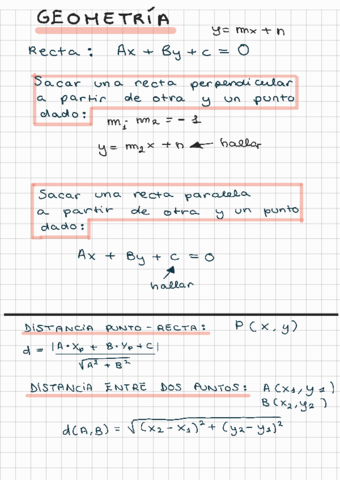 GEOMETRÍA
y = mx + n
Recta: Ax + By + c = 0
Sacar una recta perpendicular
a partir de otra y un punto
dado:
m₁ · m₂ = - 1
y = m₂x + n ← hallar
Sacar una recta paralela
a partir de otra y un punto
dado:
Ax + By + c = 0
hallar
DISTANCIA PUNTO - RECTA: P(x, y)
d = |A·Xp + B·Yp + C| / √(A² + B²)
DISTANCIA ENTRE DOS PUNTOS: A(x₁, y₁)
B(x₂, y₂)
d(A,B) = √((x₂ - x₁)² + (y₂ - y₁)²)